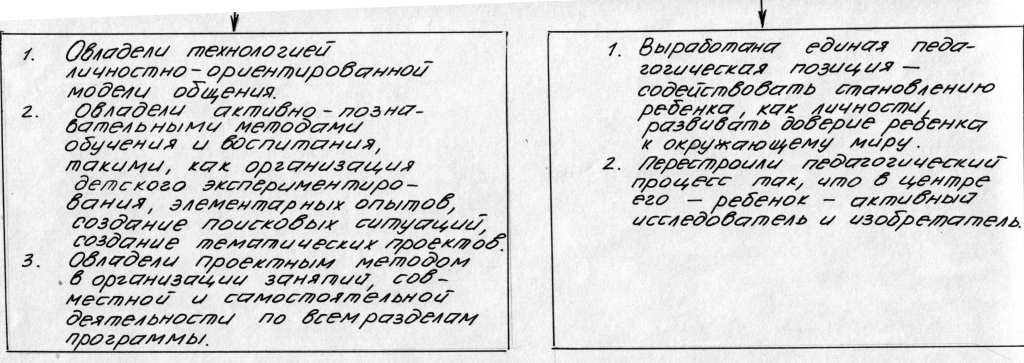 1. Овладели технологией
личностно-ориентированной
модели общения.
2. Овладели активно-позна-
вательными методами
обучения и воспитания,
такими, как организация
детского экспериментиро-
вания, элементарных опытов,
создание поисковых ситуаций,
создание тематических проектов.
3. Овладели проектным методом
в организации занятий, сов-
местной и самостоятельной
деятельности по всем разделам
программы.
1. Выработана единая педа-
гогическая позиция —
содействовать становлению
ребенка, как личности,
развивать доверие ребенка
к окружающему миру.
2. Перестроили педагогический
процесс так, что в центре
его — ребенок — активный
исследователь и изобретатель.